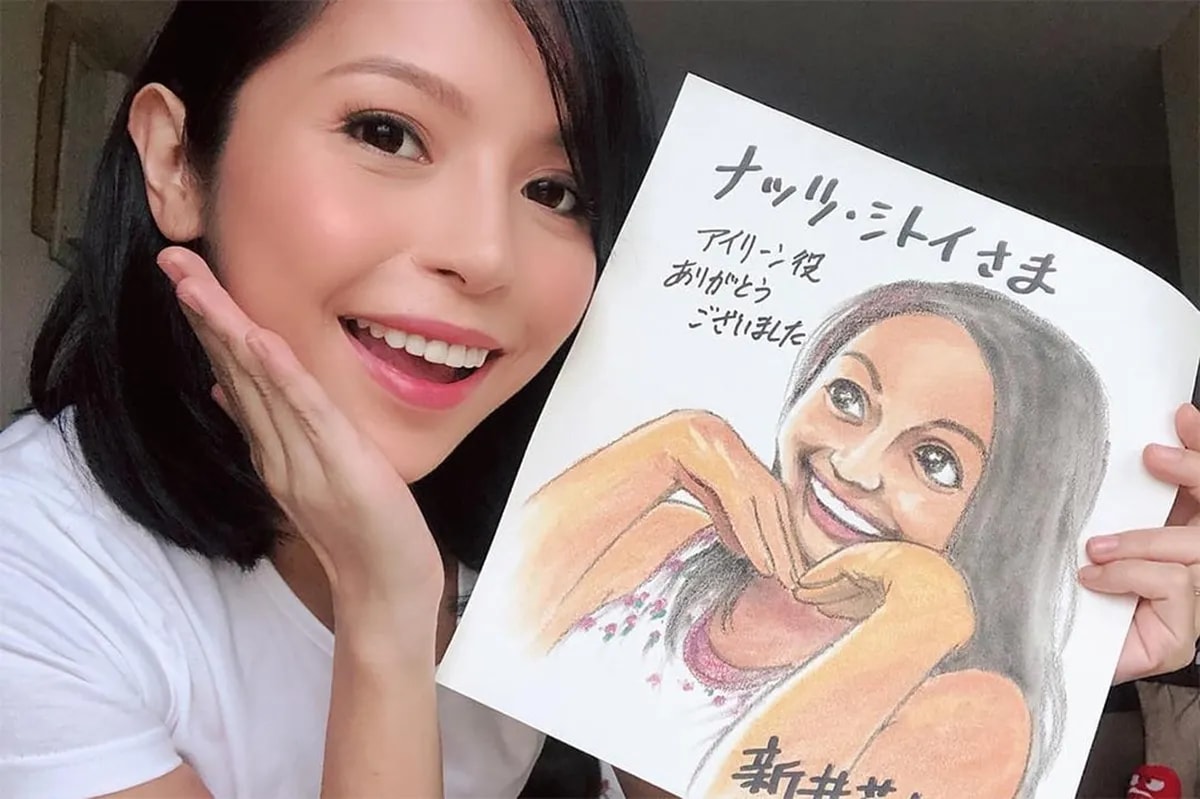 ナッツ・シトイさま
アイリーン役
ありがとう
ございました
新井